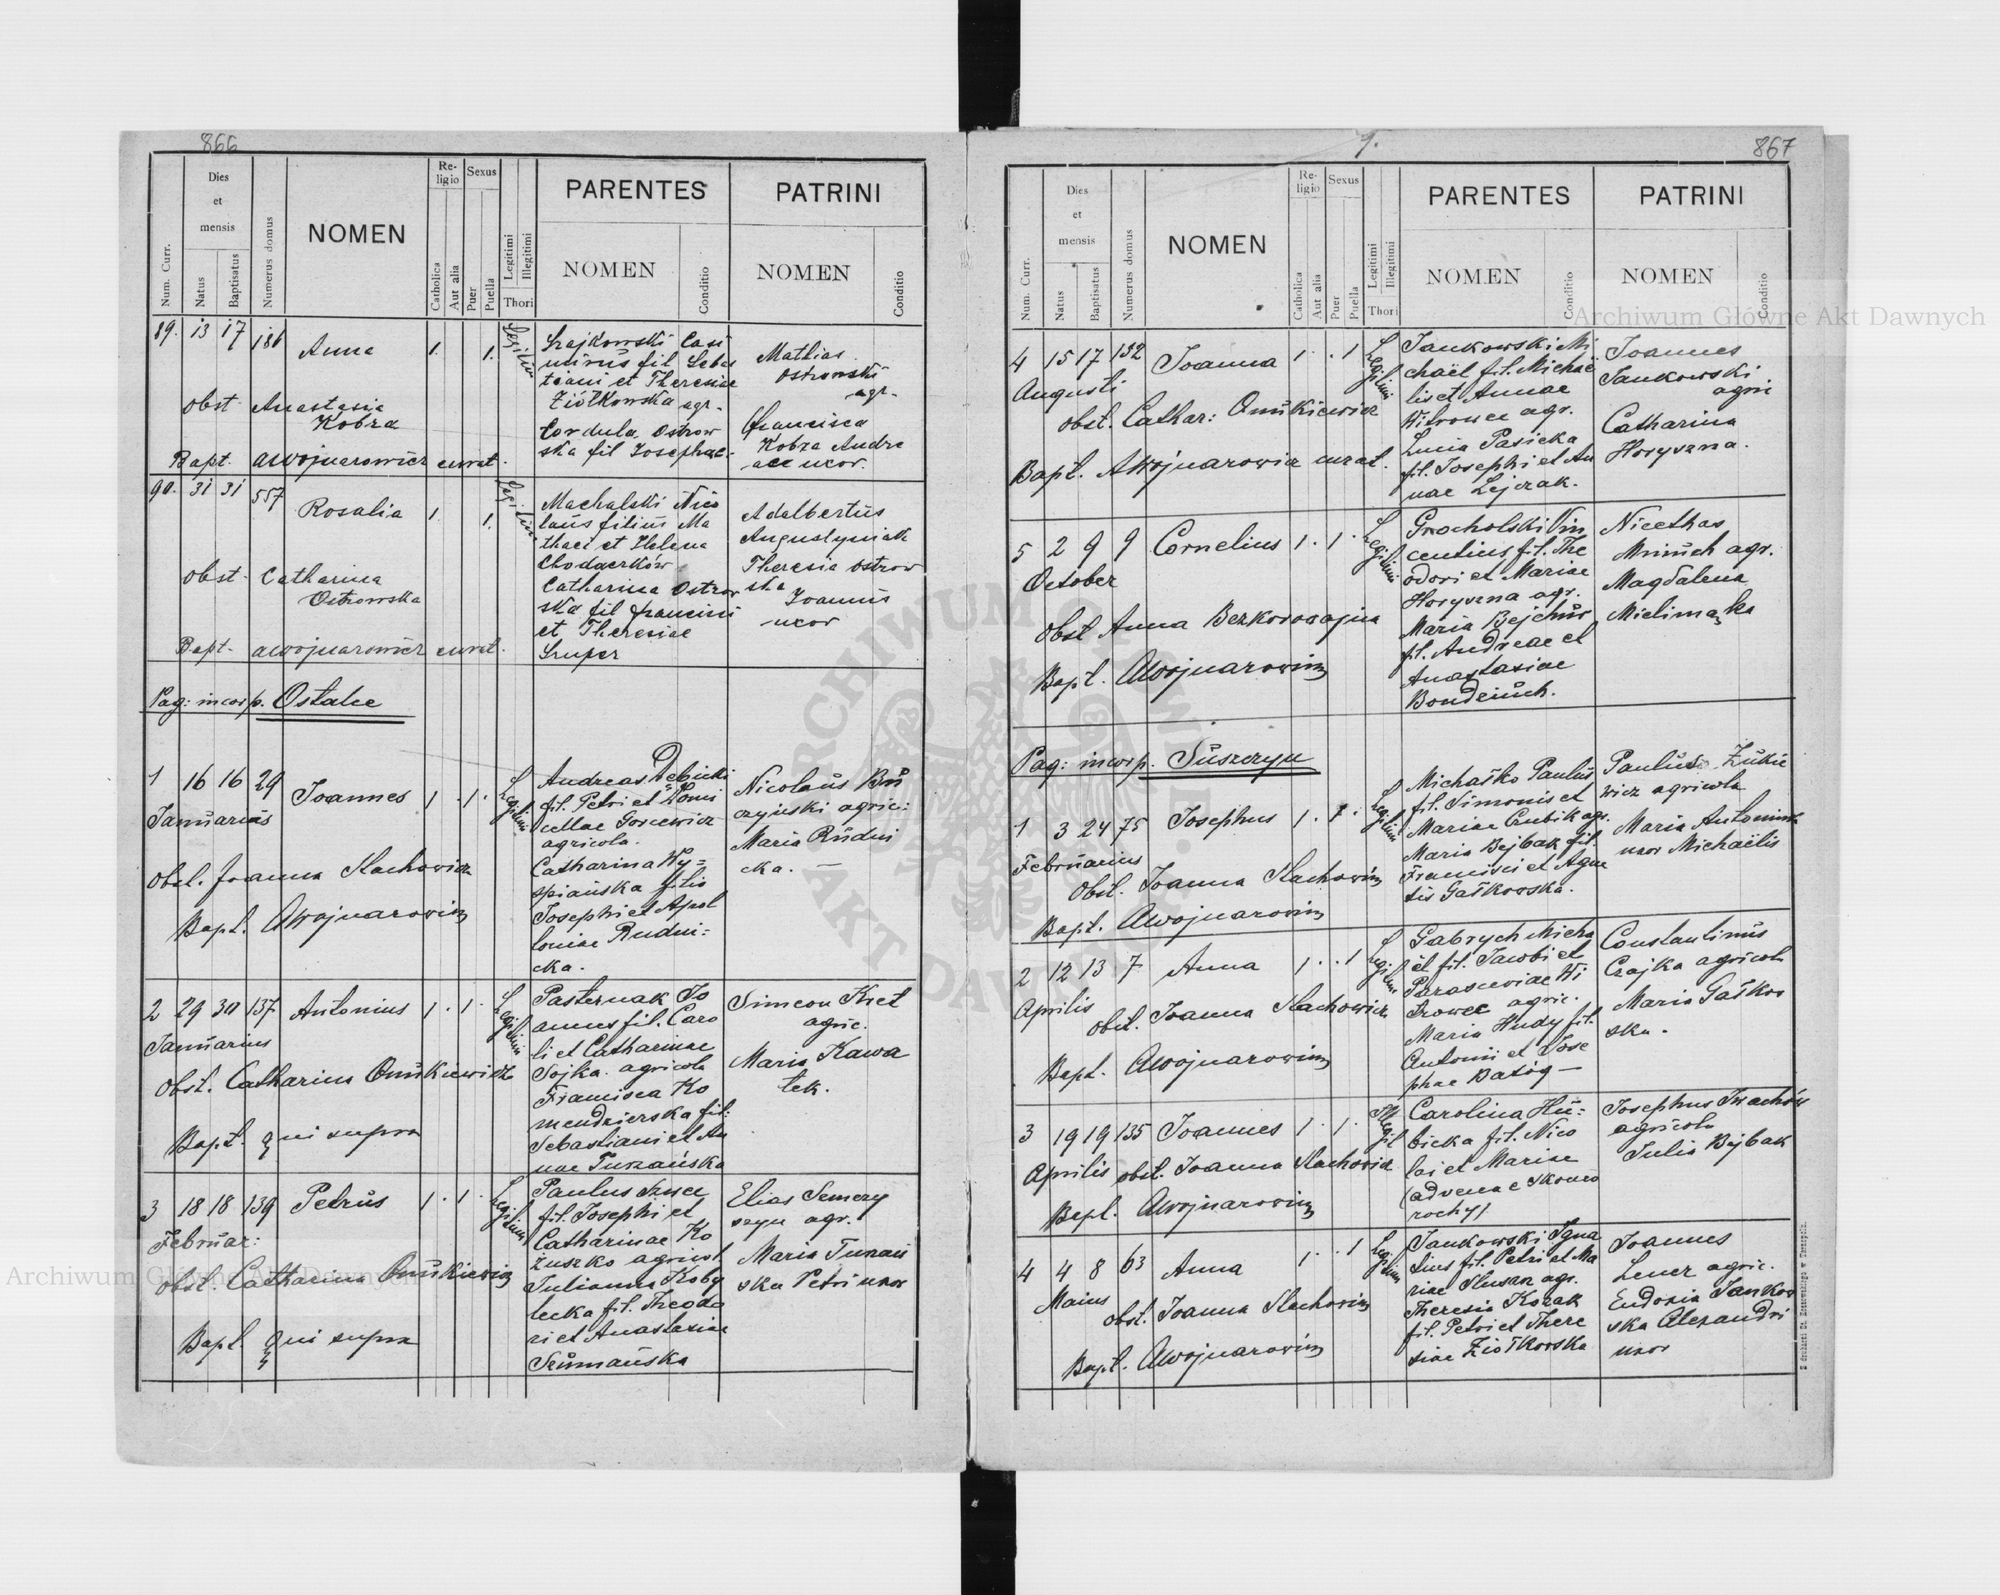 866
Num. Curr.
Dies et mensis
Natus
Baptisatus
Numerus domus
NOMEN
Religio
Catholica
Aut alia
Sexus
Puer
Puella
Legitimi
Illegitimi
Thori
PARENTES
NOMEN
Conditio
PATRINI
NOMEN
Conditio
89. 13 17 186 Anna 1. 1. Legitimi
obst Anastasia
Kobza
Bapt. AWojnarowicz curat.
Szajkowski Casi
mirus fil Sebas
tiani et Theresiae
Ziółkowska agr.
Cordula Ostrow
ska fil Josephae
Mathias
Ostrowski
agr.
Francisca
Kobza Andre
ae uxor.
90. 31 31 557 Rosalia 1. 1. Legitimi
obst. Catharina
Ostrowska
Bapt. AWojnarowicz curat.
Machalski Nico
laus filius Ma
thaei et Helena
Chodaczków
Catharina Ostrow
ska fil Francisci
et Theresiae
Szuper
Adalbertus
Augustyniak
Theresia Ostrow
ska
Joannis
uxor
Pag: incorp. Ostalce
1 16 16 29 Joannes 1. 1. Legitimi
Januarius
Obst. Joanna Stachowicz
Bapt. AWojnarowicz
Andreas Dębicki
fil. Petri et
Gorcewicz
agricola.
Catharina Wy=
spiańska filia
Josephi et Apol
loniae Rudni=
cka.
Nicolaus Bu
czyński agric:
Maria Rudni
cka.
2 29 30 137 Antonius 1. 1. Legitimi
Januarius
Obst. Catharina Onukiewicz
Bapt. qui supra
Pasternak Jo
annes fil. Caro
li et Catharinae
Sojka. agricola
Francisca Ko
mendzierska fil:
Sebastiani et An
nae Turzańska
Simeon Kret
agric.
Maria Kawa
tek.
3 18 18 139 Petrus 1. 1. Legitimi
Februar:
Obst. Catharina Onukiewicz
Bapt. qui supra
Paulus
fil. Josephi et
Catharinae Ko
żuszko agricol
Julianna Koby
lecka fil. Theodo
ri et Anastasiae
Szumańska
Elias Semczy
szyn agr.
Maria Turzań
ska Petri uxor
9.
867
Num. Curr.
Dies et mensis
Natus
Baptisatus
Numerus domus
NOMEN
Religio
Catholica
Aut alia
Sexus
Puer
Puella
Legitimi
Illegitimi
Thori
PARENTES
NOMEN
Conditio
PATRINI
NOMEN
Conditio
4 15 17 132 Joanna 1. 1 Legitimi
Augusti
obst. Cathar: Onukiewicz
Bapt. AWojnarowicz curat.
Jankowski Mi
chaël fil. Michaë
lis et Annae
Witrowee agr.
Lucia Pasieka
fil. Josephi et An
nae Lejczak.
Joannes
Jankowski
agric
Catharina
Horyszna.
5 2 9 9 Cornelius 1. 1. Legitimi
October
Obst Anna Bezkorowajna
Bapt. AWojnarowicz
Grocholski Vin
centius fil. The
odori et Mariae
Horyszna agr.
Maria Bejchur
fil. Andreae et
Anastasiae
Bondziuch.
Nicethas
Mniuch agr.
Magdalena
Mielimączka
Pag: incorp. Suszczyn
1 3 24 75 Josephus 1. 1. Legitimi
Februarius
Obst. Joanna Stachowicz
Bapt. AWojnarowicz
Michałko Paulus
fil. Simonis et
Mariae Czubik agr.
Maria Bejbak fil.
Francisci et Agne
tis Gałkowska.
Paulus Żukie
wicz agricola
Maria Antoniuk
uxor Michaëlis
2 12 13 7 Anna 1. 1 Legitimi
Aprilis
obst. Joanna Stachowicz
Bapt. AWojnarowicz
Gabrych Micha
ël fil. Jacobi et
Parasceviae Wi
trowee agric.
Maria Hudy fil.
Antonii et Jose
phae Batóg
Constantinus
Czajka agricola
Maria Gałkow
ska.
3 19 19 135 Joannes 1. 1. Illegit
Aprilis obst. Joanna Stachowicz
Bapt. AWojnarowicz
Carolina Hu=
bicka fil. Nico
lai et Mariae
(advenae Skomo
rochy)
Josephus Iwachów
agricola
Julia Bejbak
4 4 8 63 Anna 1. 1 Legitimi
Maius
obst. Joanna Stachowicz
Bapt. AWojnarowicz
Jankowski Igna
tius fil. Petri et Ma
riae Slusar agr.
Theresia Kozak
fil. Petri et There
siae Ziółkowska
Joannes
Lencz agric.
Eudoxia Jankow
ska Alexandri
uxor
Archiwum Główne Akt Dawnych
Archiwum Główne Akt Dawnych
ARCHIWUM GŁÓWNE
AKT DAWNYCH